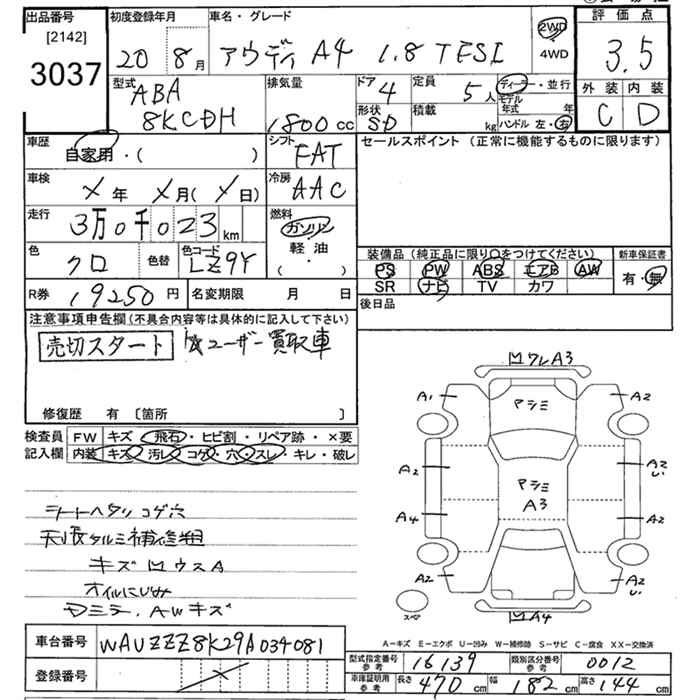 出品番号 初度登録年月 車名・グレード 評価点
[2142]
3037
20 8月 アウディ A4 1.8 TFSI 2WD・4WD 3.5
型式 排気量 ドア 定員 ディーラー・並行 外装 内装
ABA 4 5人 モデル年式 年 C D
8KCDH 1800cc 形状 SD 積載 kg ハンドル 左・右
車歴 シフト セールスポイント (正常に機能するものに限ります)
自家用・( ) FAT
車検 冷房
X年 X月(X日) AAC
走行 燃料
3万0千023km ガソリン
色 色替 色コード 軽・油 装備品(純正品に限り○をつけてください) 新車保証書
クロ LZ9Y ( ・ ) PS PW ABS エアB AW 有・無
SR ナビ TV カワ
R券 19250円 名変期限 月 日 後日品
注意事項申告欄(不具合内容等は具体的に記入して下さい)
売切スタート ☆ユーザー買取車
修復歴 有 〔箇所 〕
検査員記入欄 FW キズ・飛石・ヒビ割・リペア跡・×要
内装 キズ・汚レ・コゲ・穴・スレ・キレ・破レ
シートヘタリ コゲ穴
天張タルミ補修粗
キズ M ウスA
オイルにじみ
ワレA3
A1 マシミ A2
A2 マシミ A3 A2
A4 A2
A2 A2
スペア M A4
A-キズ E-エクボ U-凹み W-補修跡 S-サビ C-腐食 XX-交換済
車台番号 WAUZZZ8K29A034081
登録番号
型式指定番号 参考 16139 類別区分番号 参考 0012
車庫証明用 参考 長さ 470cm 幅 182cm 高さ 144cm